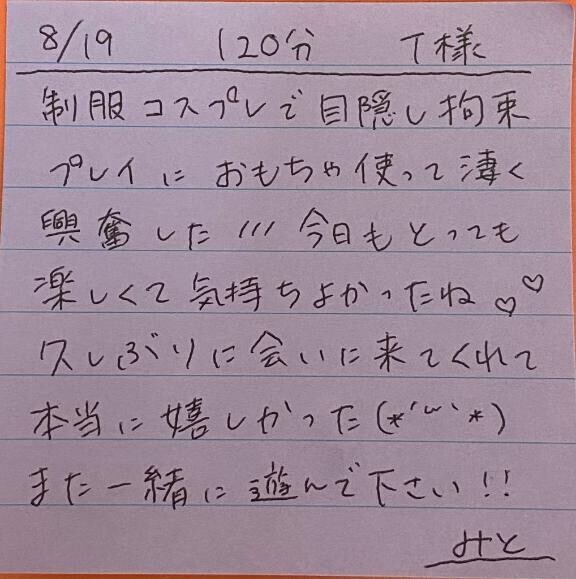 8/19 120分 T様
制服コスプレで目隠し拘束
プレイにおもちゃ使って凄く
興奮した/// 今日もとっても
楽しくて気持ちよかったね♡♡
久しぶりに会いに来てくれて
本当に嬉しかった(*´꒳`*)
また一緒に遊んで下さい!!
みと